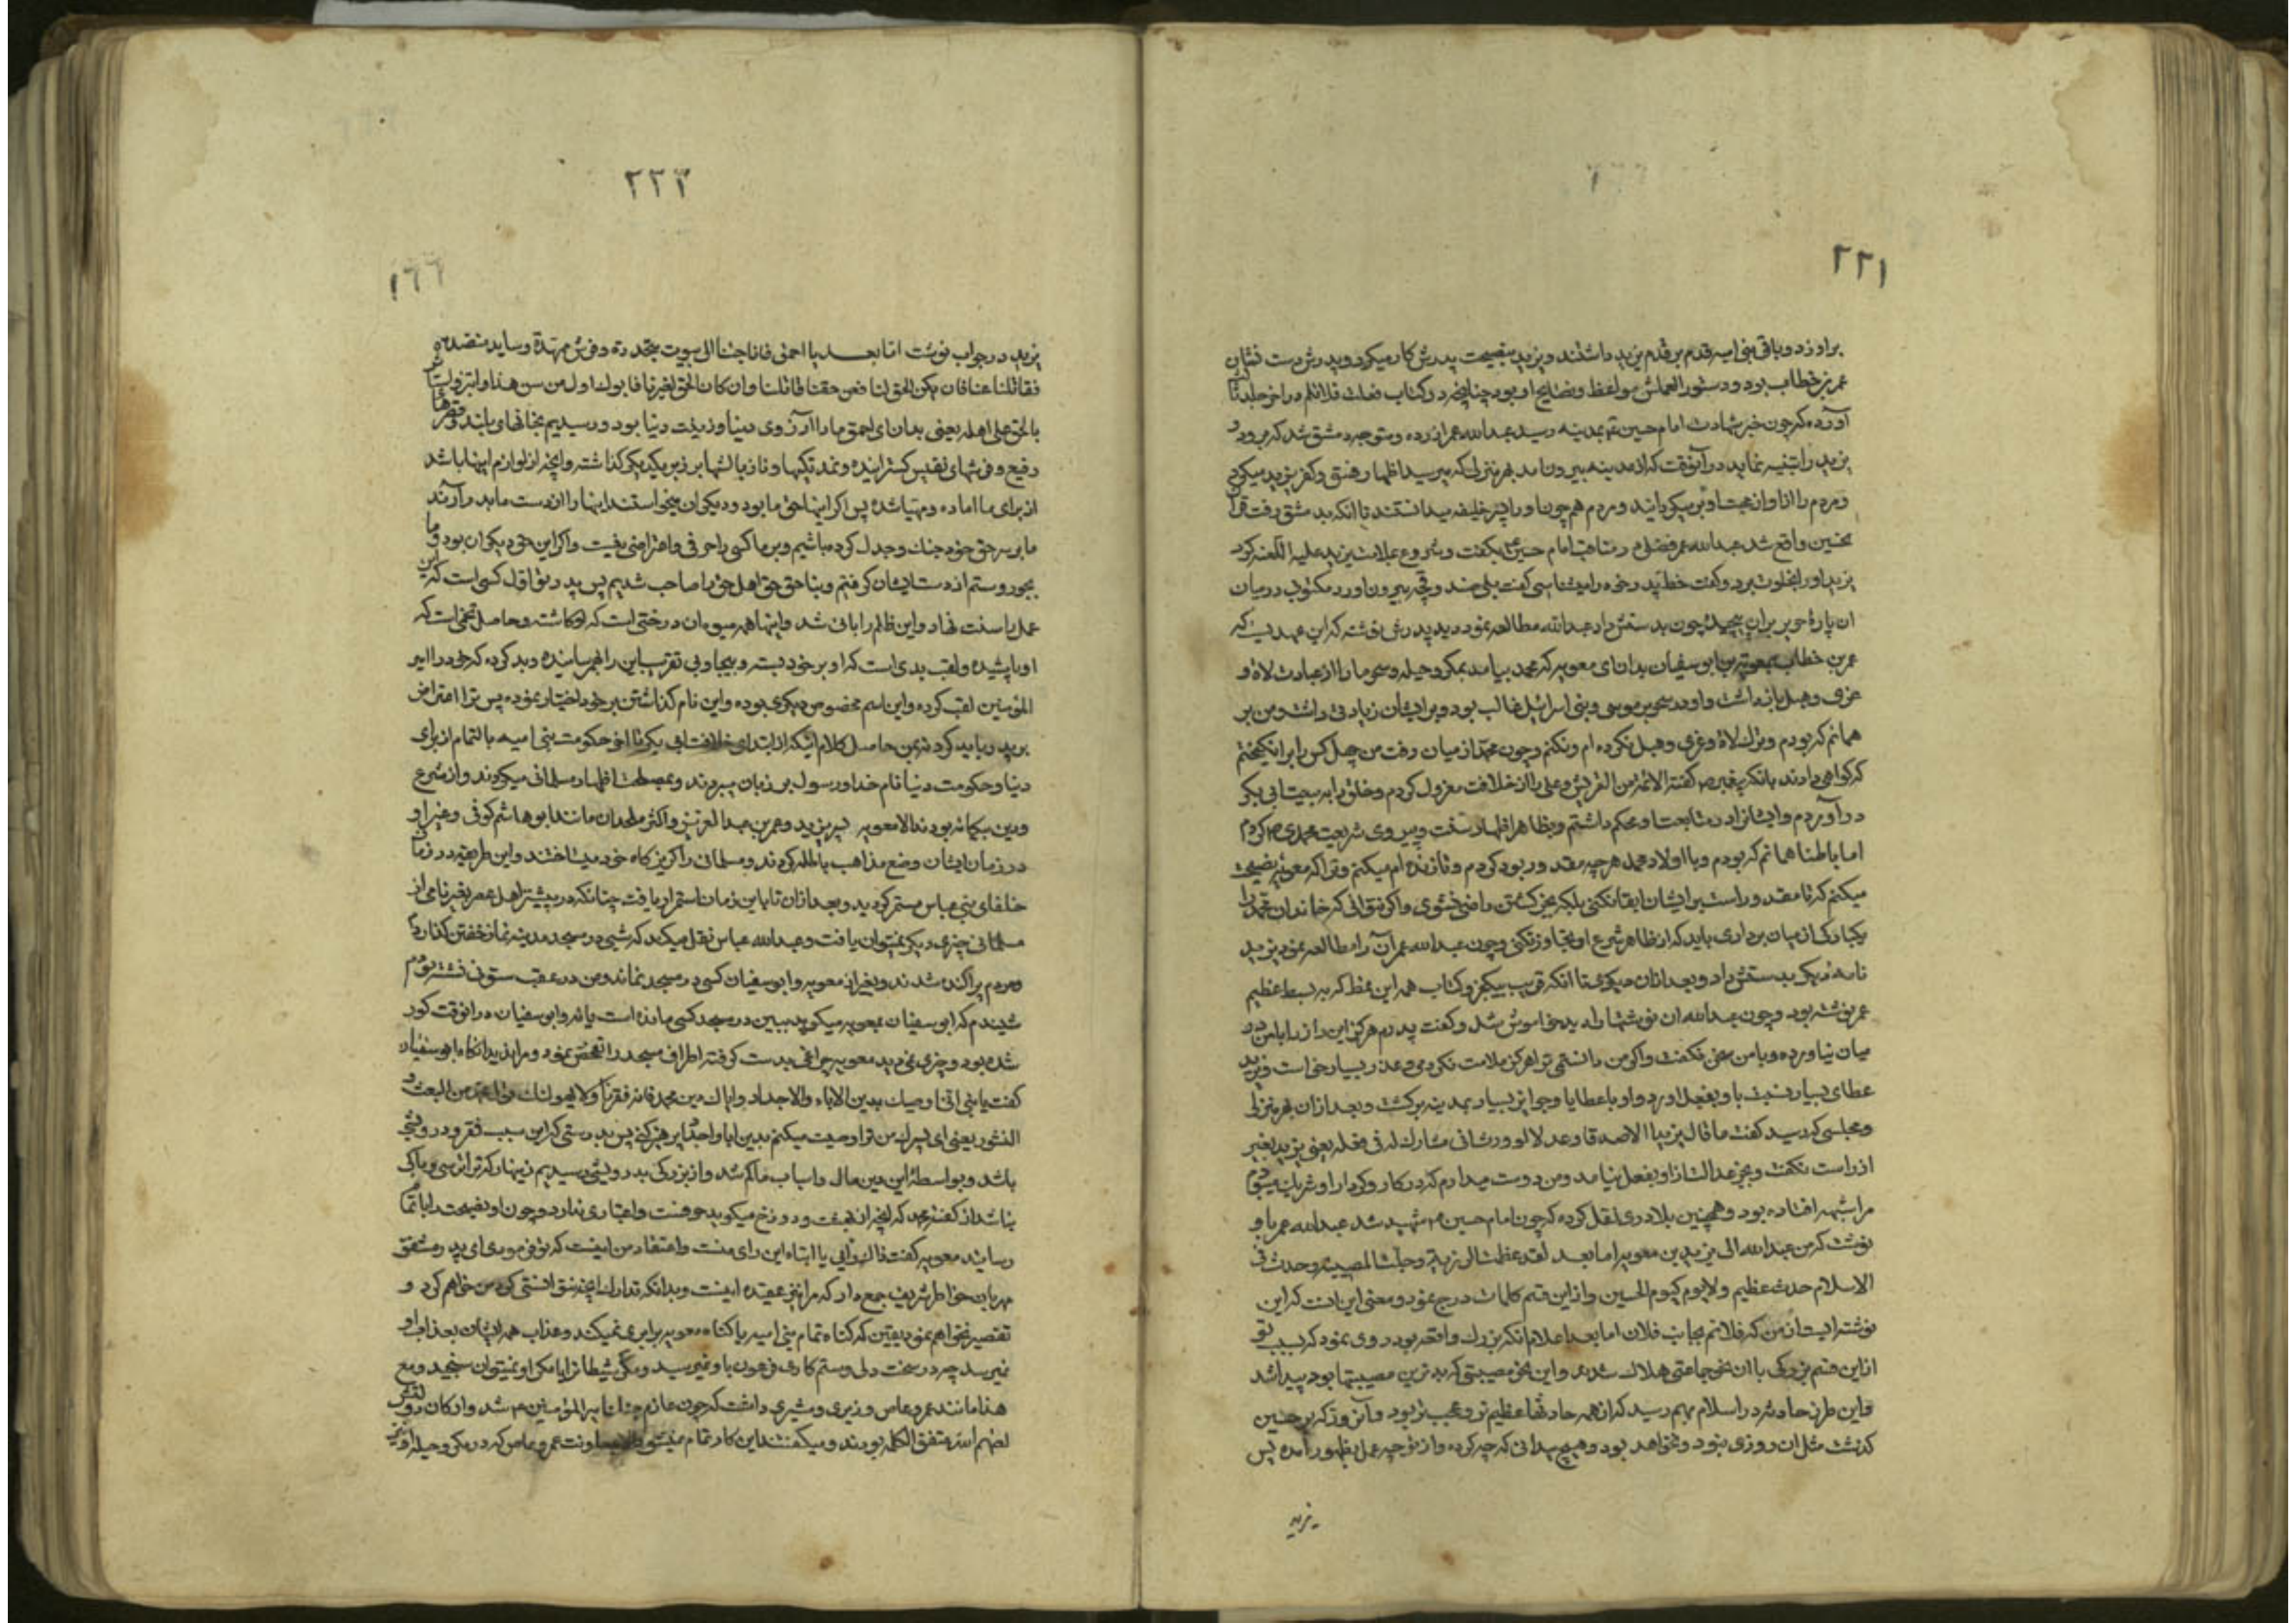 ۲۲۱
برادرزد و باقی بنی امیه قدم بر قدم یزید داشتند و یزید بنصیحت پدرش کار میکرد و پدرش دست نشان
عمر بن خطاب بود و دستور العملش مواعظ و نصایح او بود چنانچه در کتاب فعلت فلاتلم در اخر جلد
آورده که چون خبر شهادت امام حسین بمدینه رسید عبدالله عمر ازرده و متوجه دمشق شد که برود و
یزید را تنبیه نماید در آنوقت که از مدینه بیرون امد بهر منزلی که میرسید اظهار فسق و کفر یزید میکرد
و مردم را از او و از محبت او بری میکردانید و مردم هم چون او را پسر خلیفه میدانستند تا انکه بدمشق رفت
بخنین واقع شد عبدالله عمر فصلی در مناقب امام حسین ع بکفت و شروع بملامت یزید علیه اللعنه کرد
یزید او را بخلوت برد و کفت خط پدر خود را میشناسی کفت بلی صندوقچه بیرون اورد مکتوبی در میان
ان پارهٔ حریر بران پیچیده چون بدستش داد عبدالله مطالعه نمود دید پدرش نوشته که این عهدیست که
عمر بن خطاب بمعویة بن ابو سفیان بدان ای معویه که محمد بیامد بمکر و حیله و سحر ما را از عبادت لاة و
عزی و هبل بازداشت و او در سحر بر موسی و بنی اسرائیل غالب بود و بر ایشان زیادتی داشت و من بر
همانم که بودم و ترک لاة و عزی و هبل نکرده ام و نکنم و چون محمد از میان رفت من چهل کس را برانکیختم
که کواهی دادند بانکه پیغمبر ص کفته الائمة من القریش و علی را از خلافت معزول کردم و خلق را به بیعت ابی بکر
در آوردم و ایشانرا در متابعت او محکم داشتم و بظاهر اظهار سنت و پیروی شریعت محمدی ص کردم
اما باطنا همانم که بودم و با اولاد محمد هر چه مقدور بود کردم و تا زنده ام میکنم و ترا که معویهٔ نصیحت
میکنم که تا مقدور است بر ایشان ابقا نکنی بلکه بجز کشتن راضی نشوی و اکر نتوانی که خاندان محمد را
یکبارکی از میان برداری باید که از ظاهر شرع او تجاوز نکنی و چون عبدالله عمر آن را مطالعه نمود یزید
نامهٔ دیکر بدستش داد و بعد ازان دیکری تا انکه قریب بیکجزو کتاب همه این نمط که به بسط عظیم
عمر نوشته بود و چون عبدالله ان نوشتها را دید خاموش شد و کفت پدرم هرکز این راز را با من در
میان نیاورده و با من سخن نکفت و اکر من دانستمی ترا هرکز ملامت نکردمی و عذر بسیار خواست و یزید
عطای بسیار نسبت باو بفعل اورد و او با عطایا و جوایز بسیار بمدینه برکشت و بعد ازان بهر منزلی
و مجلسی که رسید کفت ما قال یزید الا صدقا و عدلا لوددت انی مشارک له فی فعله یعنی یزید بغیر
از راست نکفت و بجز عدالت ازو بفعل نیامد و من دوست میدارم که در کار و کردار او شریک
مرا شبهه افتاده بود و همچنین بلادری نقل کرده که چون امام حسین ع شهید شد عبدالله عمر باو
نوشت که من عبدالله الی یزید بن معویه اما بعد لقد عظمت الرزیة و جلت المصیبة و حدث فی
الاسلام حدث عظیم و لا یوم کیوم الحسین و از این قسم کلمات درج نمود و معنی این انست که این
نوشته ایست از من که فلانم بجانب فلان اما بعد اعلام انکه بزرک واقعه بود روی نمود که بسبب تو
از این قسم بزرکی با ان نحو جماعتی هلاک شدند و این نحو مصیبتی که بدترین مصیبتها بود پیدا شد
و این طرز حادثه در اسلام بهم رسید که از همه حادثها عظیم تر و عجب تر بود و آنروز که بر حسین
کذشت مثل ان روزی نبود و نخواهد بود و هیچ میدانی که چه کرده و از تو چه عمل بظهور آمده پس
یزید
۲۲۲
۱۶۶
یزید در جواب نوشت اما بعد یا احمق فانا جئنا الی بیوت مجددة و فرش ممهدة و وساید منضدة
فقاتلنا عنها فان یکن الحق لنا فعن حقنا قاتلنا و ان کان الحق لغیرنا فابوک اول من سن هذا و ابتز و استاثر
بالحق علی اهله یعنی بدان ای احمق ما را آرزوی دنیا و زینت دنیا بود و رسیدیم بخانهای بلند و قصرهای
رفیع و فرشهای نفیس کسترانیده و نمد تکیها و ناز بالشها بر زبر یکدیکر کذاشته و انچه از لوازم اینها باشد
از برای ما اماده و مهیا شده پس اکر اینها حق ما بود و دیکران میخواستند اینها را از دست ما بدر آرند
ما بر سر حق خود جنک و جدل کرده باشیم و بر ما کسی را حرفی و اعتراضی نیست و اکر این حق دیکران بود و ما
بجور و ستم از دست ایشان کرفتیم و بناحق حق اهل حق را صاحب شدیم پس پدر تو اول کسی است که این
عمل را سنت نهاد و این ظلم را بانی شد و اینها همه میوه ان درختی است که او کاشته و حاصل تخمی است که
او پاشیده و لقب بدی است که او بر خود بسته و بیجا و بی تقریب این را بهم رسانیده و بد کرده که خود را امیر
المؤمنین لقب کرده و این اسم مخصوص دیکری بوده و این نام کذاشتن بر خود اختیار نموده پس ترا اعتراض
بر پدر باید کرد نه بمن حاصل کلام اینکه از ابتدای خلافت ابی بکر تا اخر حکومت بنی امیه بالتمام از برای
دنیا و حکومت دنیا نام خدا و رسول بر زبان میبردند و بمصلحت اظهار مسلمانی میکردند و از شرع
و دین بیکانه بودند الا معویه پسر یزید و عمر بن عبد العزیز و اکثر ملحدان مانند ابو هاشم کوفی و غیر او
در زمان ایشان وضع مذاهب باطله کردند و مسلمانی را کریزکاه خود میساختند و این طریقه در زمان
خلفای بنی عباس مستمر کردید و بعد ازان تا باین زمان استمرار یافت چنانکه در بیشتر اهل عصر بغیر نامی از
مسلمانی چیزی دیکر نمیتوان یافت و عبدالله عباس نقل میکند که شبی در مسجد مدینه نماز خفتن کذاردم
و مردم پراکنده شدند و بغیر از معویه و ابو سفیان کسی در مسجد نماند و من در عقب ستونی نشسته بودم
شنیدم که ابو سفیان بمعویه میکوید ببین در مسجد کسی مانده است یا نه و ابو سفیان در انوقت کور
شده بود و چیزی نمیدید معویه چراغی بدست کرفته اطراف مسجد را تفحص نمود و مرا ندید انکاه ابو سفیان
کفت یا بنی انی اوصیک بدین الاباء و الاجداد و ایاک و دین محمد فانه فقرنا و لا یهولنک قول محمد من البعث و
النشور یعنی ای پسرک من ترا وصیت میکنم بدین ابا و اجداد پرهیز کنی پس بدرستی که این سبب فقر و درویشی
باشد و بواسطهٔ این دین مال و اسباب ما کم شد و از بزرکی بدرویشی رسیدیم زینهار که ترا ترسی و باکی
نباشد از کفتهٔ محمد که انچه از بهشت و دوزخ میکوید حرفیست و اعتباری ندارد و چون او نصیحت را باتمام
رسانید معویه کفت ذاک رأیی یا ابتاه این رای منست و اعتقاد من اینست که توفرمودی ای پدر مشفق
مهربان خواطر شریف جمع دار که مرا نیز عقیده اینست و بدانکه تدارک انچه نتوانستی کرد من خواهم کرد و
تقصیر نخواهم نمود یقین که کناه تمام بنی امیه با کناه معویه برابری نمیکند و عذاب همه ایشان بعذاب او
نمیرسد چه در سخت دلی و ستم کاری فرعون باو نمیرسید و مکر شیطان را با مکر او نمیتوان سنجید و مع
هذا مانند عمرو عاص وزیری و مشیری داشت که چون عازم جنک امیر المؤمنین ع شد و ارکان دولتش
لعنهم الله متفق الکلمه بودند و میکفتند این کار تمام نمیشود الا بمعاونت عمرو عاص که در مکر و حیله او نیز